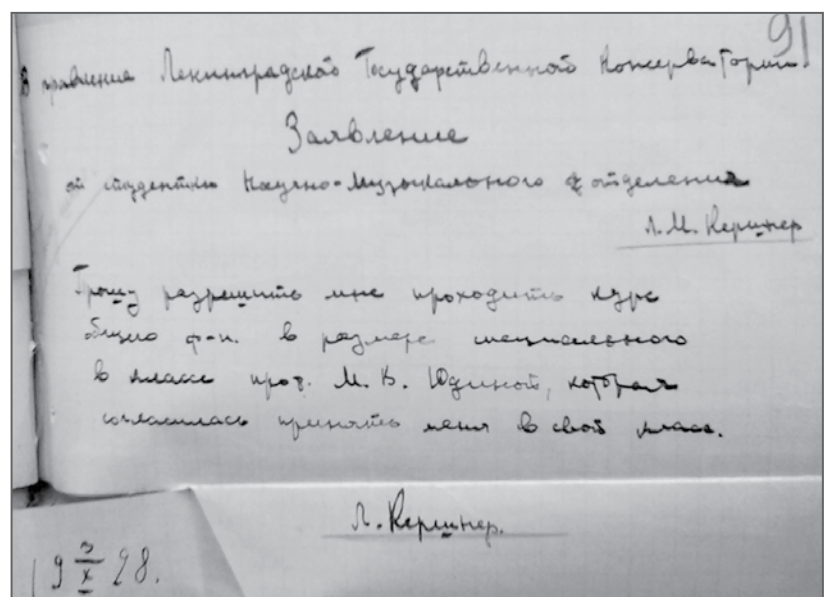 91
В правление Ленинградской Государственной Консерватории
Заявление
от студентки Научно-Музыкального отделения
Л.М. Кершнер
Прошу разрешить мне проходить курс
общего ф-п. в размере специального
в классе проф. М. В. Юдиной, которая
согласилась принять меня в свой класс.
Л. Кершнер.
19 3/X 28.